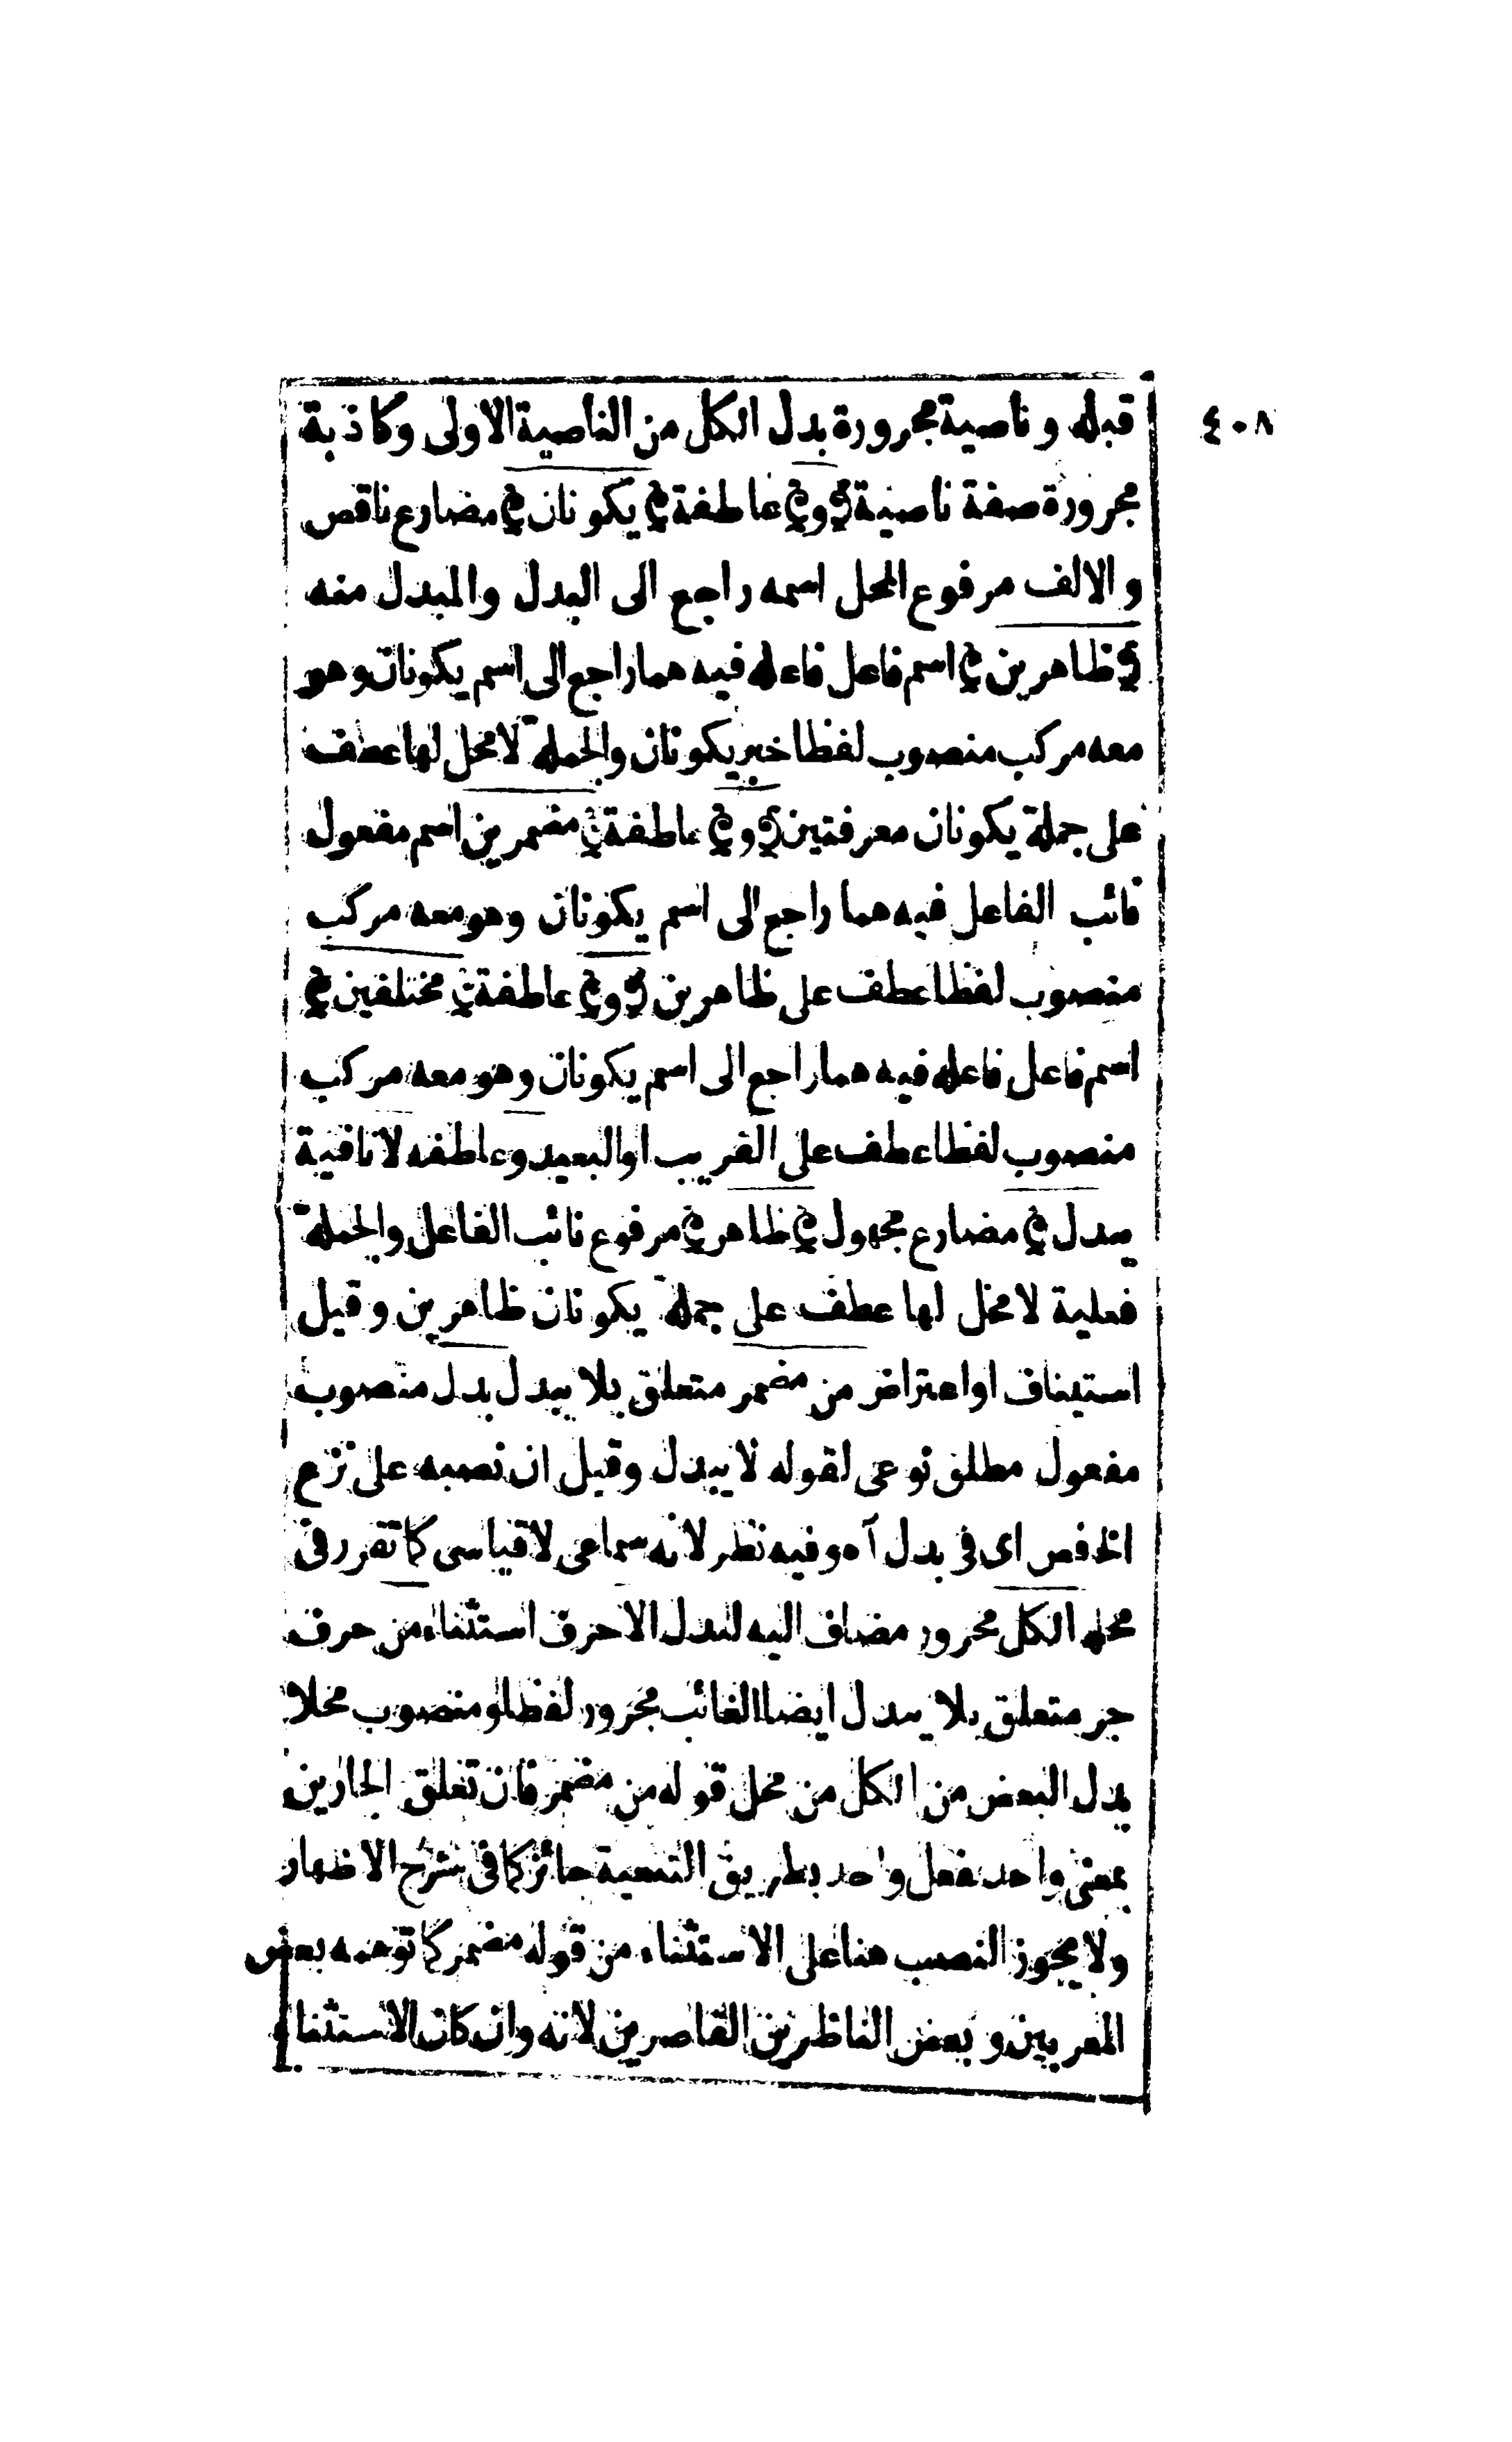 ٤٠٨
قبله وناصية مجرورة بدل الكل من الناصية الاولى وكاذبة
مجرورة صفة ناصية و عاطفة يكونان مضارع ناقص
والالف مرفوع المحل اسمه راجع الى البدل والمبدل منه
ظاهرين اسم فاعل فاعله فيه هما راجع الى اسم يكونان وهو
معه مركب منصوب لفظا خبر يكونان والجملة لا محل لها عطف
على جملة يكونان معرفتين و عاطفة مضمرين اسم مفعول
نائب الفاعل فيه هما راجع الى اسم يكونان وهو معه مركب
منصوب لفظا عطف على ظاهرين و عاطفة مختلفين
اسم فاعل فاعله فيه هما راجع الى اسم يكونان وهو معه مركب
منصوب لفظا عطف على القريب او البعيد وعاطفه لا نافية
يبدل مضارع مجهول ظاهر مرفوع نائب الفاعل والجملة
فعلية لا محل لها عطف على جملة يكونان ظاهرين وقيل
استيناف او اعتراض من مضمر متعلق بلا يبدل بدل منصوب
مفعول مطلق نوعى لقوله لا يبدل وقيل ان نصبه على نزع
الخافض اى فى بدل آه وفيه نظر لانه سماعى لا قياسى كما تقرر فى
محله الكل مجرور مضاف اليه لبدل الا حرف استثناء من حرف
جر متعلق بلا يبدل ايضا الغائب مجرور لفظا و منصوب محلا
بدل البعض من الكل من محل قوله من مضمر فان تعلق الجارين
بمعنى واحد بفعل واحد بطريق التبعية جائز كما فى شرح الاظهار
ولا يجوز النصب هنا على الاستثناء من قوله مضمر كما توهمه بعض
المعربين و بعض الناظرين القاصرين لانه وان كان الاستثناء